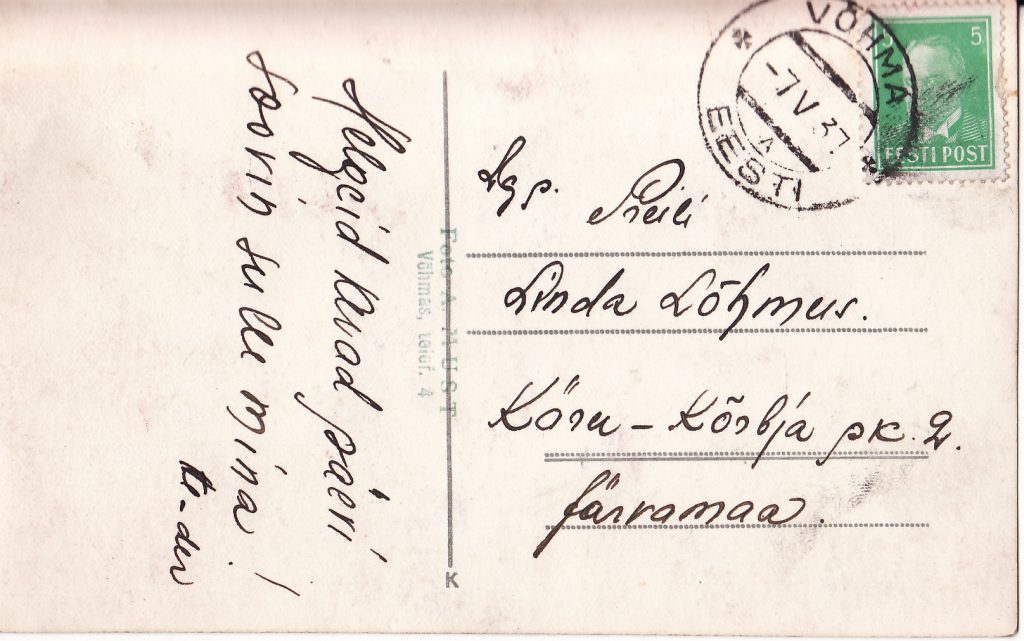 Helgeid kevad päevi
soovin sulle mina!
to-din
Foto A. MUST
Võhmas, telef. 4
K
VÕHMA
-7 V 37
A
EESTI
5
EESTI POST
Lgp. Preili
Linda Lõhmus.
Käru - Kõrbja pk. 2.
Järvamaa.